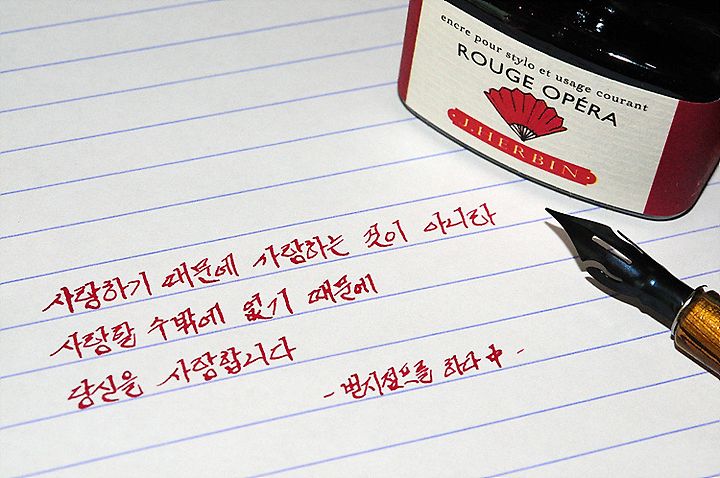 encre pour stylo et usage courant
ROUGE OPÉRA
J. HERBIN
사랑하기 때문에 사랑하는 것이 아니라
사랑할 수밖에 없기 때문에
당신을 사랑합니다
- 번지점프를 하다 中 -